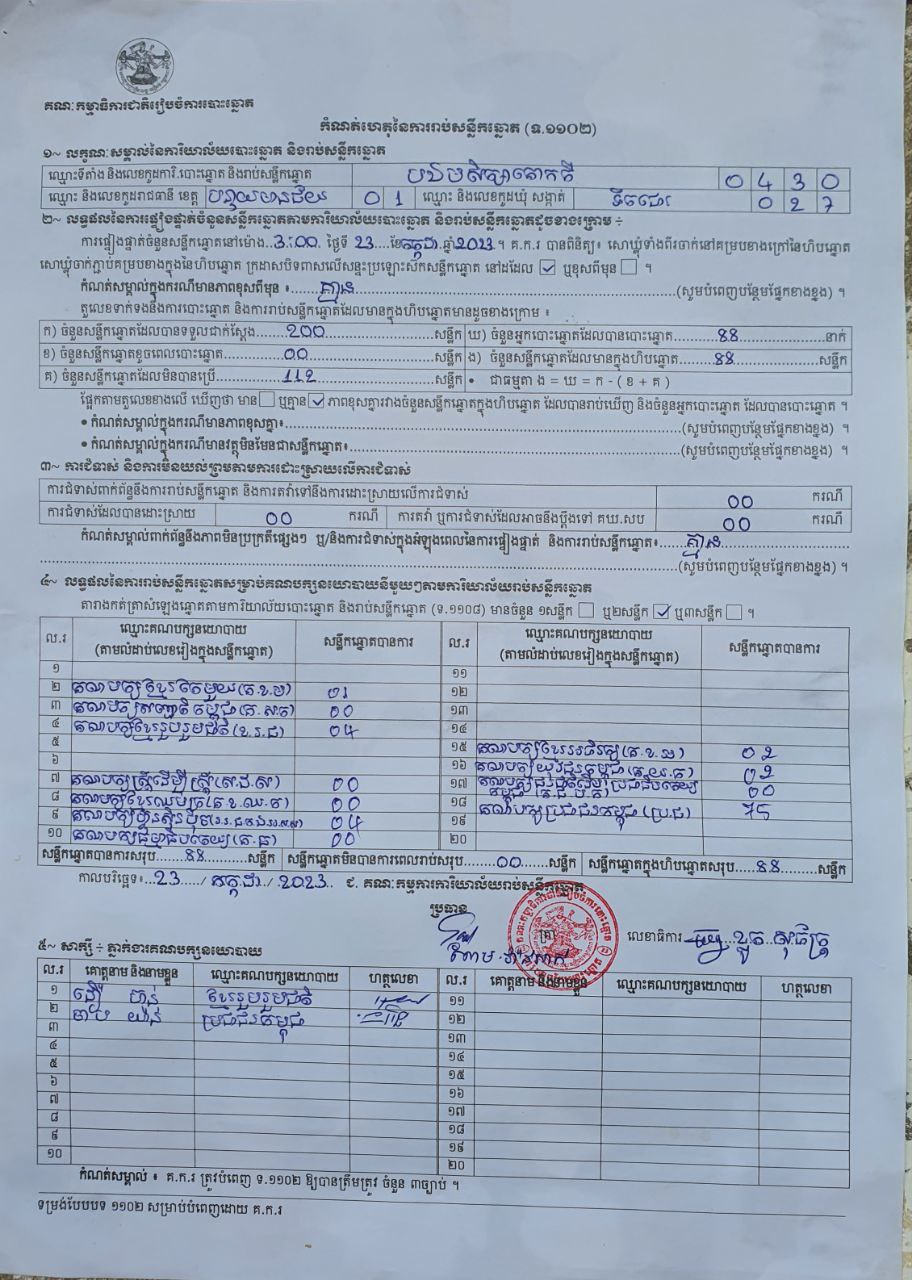 គណៈកម្មាធិការជាតិរៀបចំការបោះឆ្នោត
កំណត់ហេតុនៃការរាប់សន្លឹកឆ្នោត (ទ.១១០២)
១~ លក្ខណៈសម្គាល់នៃការិយាល័យបោះឆ្នោត និងរាប់សន្លឹកឆ្នោត
ឈ្មោះទីតាំង និងលេខកូដការិ.បោះឆ្នោត និងរាប់សន្លឹកឆ្នោត 0 4 3 0
ឈ្មោះ និងលេខកូដរាជធានី ខេត្ត បន្ទាយមានជ័យ 0 1 ឈ្មោះ និងលេខកូដឃុំ សង្កាត់ ទឹកជោរ 0 2 7
២~ លទ្ធផលនៃការផ្ទៀងផ្ទាត់ចំនួនសន្លឹកឆ្នោតតាមការិយាល័យបោះឆ្នោត និងរាប់សន្លឹកឆ្នោតដូចខាងក្រោម ÷
ការផ្ទៀងផ្ទាត់ចំនួនសន្លឹកឆ្នោតនៅម៉ោង..3:00. ថ្ងៃទី 23....ខែកក្កដា.ឆ្នាំ2023.។ គ.ក.រ បានពិនិត្យ៖ សោឃ្លុំទាំងពីរចាក់នៅគម្របខាងក្រៅនៃហិបឆ្នោត
សោឃ្លុំចាក់ភ្ជាប់គម្របខាងក្នុងនៃហិបឆ្នោត ក្រដាសបិទពាសលើសន្ទះប្រឡោះស៊កសន្លឹកឆ្នោត នៅដដែល ☑ ឬខុសពីមុន ☐ ។
កំណត់សម្គាល់ក្នុងករណីមានភាពខុសពីមុន ៖......គ្មាន......(សូមបំពេញបន្ថែមផ្នែកខាងខ្នង) ។
តួលេខទាក់ទងនឹងការបោះឆ្នោត និងការរាប់សន្លឹកឆ្នោតដែលមានក្នុងហិបឆ្នោតមានដូចខាងក្រោម ៖
ក) ចំនួនសន្លឹកឆ្នោតដែលបានទទួលជាក់ស្តែង......200......សន្លឹក ឃ) ចំនួនអ្នកបោះឆ្នោតដែលបានបោះឆ្នោត......88......នាក់
ខ) ចំនួនសន្លឹកឆ្នោតខូចពេលបោះឆ្នោត......00......សន្លឹក ង) ចំនួនសន្លឹកឆ្នោតដែលមានក្នុងហិបឆ្នោត......88......សន្លឹក
គ) ចំនួនសន្លឹកឆ្នោតដែលមិនបានប្រើ......112......សន្លឹក • ជាធម្មតា ង = ឃ = ក - ( ខ + គ )
ផ្អែកតាមតួលេខខាងលើ ឃើញថា មាន ☐ ឬគ្មាន ☑ ភាពខុសគ្នារវាងចំនួនសន្លឹកឆ្នោតក្នុងហិបឆ្នោត ដែលបានរាប់ឃើញ និងចំនួនអ្នកបោះឆ្នោត ដែលបានបោះឆ្នោត ។
• កំណត់សម្គាល់ក្នុងករណីមានភាពខុសគ្នា៖......(សូមបំពេញបន្ថែមផ្នែកខាងខ្នង) ។
• កំណត់សម្គាល់ក្នុងករណីមានវត្ថុមិនមែនជាសន្លឹកឆ្នោត៖......(សូមបំពេញបន្ថែមផ្នែកខាងខ្នង) ។
៣~ ការជំទាស់ និងការមិនយល់ព្រមតាមការដោះស្រាយលើការជំទាស់
ការជំទាស់ពាក់ព័ន្ធនឹងការរាប់សន្លឹកឆ្នោត និងការតវ៉ាទៅនឹងការដោះស្រាយលើការជំទាស់ 00 ករណី
ការជំទាស់ដែលបានដោះស្រាយ 00 ករណី ការតវ៉ា ឬការជំទាស់ដែលអាចនឹងប្តឹងទៅ គឃ.សប 00 ករណី
កំណត់សម្គាល់ពាក់ព័ន្ធនឹងភាពមិនប្រក្រតីផ្សេងៗ ឬ/និងការជំទាស់ក្នុងអំឡុងពេលនៃការផ្ទៀងផ្ទាត់ និងការរាប់សន្លឹកឆ្នោត៖......គ្មាន......
......(សូមបំពេញបន្ថែមផ្នែកខាងខ្នង) ។
៤~ លទ្ធផលនៃការរាប់សន្លឹកឆ្នោតសម្រាប់គណបក្សនយោបាយនីមួយៗតាមការិយាល័យរាប់សន្លឹកឆ្នោត
តារាងកត់ត្រាសំឡេងឆ្នោតតាមការិយាល័យបោះឆ្នោត និងរាប់សន្លឹកឆ្នោត (ទ.១១០៨) មានចំនួន ១សន្លឹក ☐ ឬ២សន្លឹក ☑ ឬ៣សន្លឹក ☐ ។
ល.រ ឈ្មោះគណបក្សនយោបាយ (តាមលំដាប់លេខរៀងក្នុងសន្លឹកឆ្នោត) សន្លឹកឆ្នោតបានការ ល.រ ឈ្មោះគណបក្សនយោបាយ (តាមលំដាប់លេខរៀងក្នុងសន្លឹកឆ្នោត) សន្លឹកឆ្នោតបានការ
១ ១១
២ គណបក្សខ្មែរតែមួយ(គ.ខ.ម) 01 ១២
៣ 00 ១៣
៤ គណបក្សខ្មែររួបរួមជាតិ(ខ.រ.ជ) 04 ១៤
៥ ១៥ 02
៦ ១៦ 02
៧ គណបក្សស្ត្រីដើម្បីស្ត្រី(ស.ដ.ស) 00 ១៧ 00
៨ 00 ១៨ គណបក្សប្រជាជនកម្ពុជា (ប្រ.ជ) 75
៩ 04 ១៩
១០ គណបក្សធម្មាធិបតេយ្យ(គ.ធ) 00 ២០
សន្លឹកឆ្នោតបានការសរុប......88......សន្លឹក សន្លឹកឆ្នោតមិនបានការពេលរាប់សរុប......00......សន្លឹក សន្លឹកឆ្នោតក្នុងហិបឆ្នោតសរុប......88......សន្លឹក
កាលបរិច្ឆេទ៖...23...../ កក្កដា../ .2023.. ជ. គណៈកម្មការការិយាល័យរាប់សន្លឹកឆ្នោត
ប្រធាន
លេខាធិការ
៥~ សាក្សី ÷ ភ្នាក់ងារគណបក្សនយោបាយ
ល.រ គោត្តនាម និងនាមខ្លួន ឈ្មោះគណបក្សនយោបាយ ហត្ថលេខា ល.រ គោត្តនាម និងនាមខ្លួន ឈ្មោះគណបក្សនយោបាយ ហត្ថលេខា
១ ខ្មែររួបរួមជាតិ ១១
២ ប្រជាជនកម្ពុជា ១២
៣ ១៣
៤ ១៤
៥ ១៥
៦ ១៦
៧ ១៧
៨ ១៨
៩ ១៩
១០ ២០
កំណត់សម្គាល់ ៖ គ.ក.រ ត្រូវបំពេញ ទ.១១០២ ឱ្យបានត្រឹមត្រូវ ចំនួន ៣ច្បាប់ ។
ទម្រង់បែបបទ ១១០២ សម្រាប់បំពេញដោយ គ.ក.រ